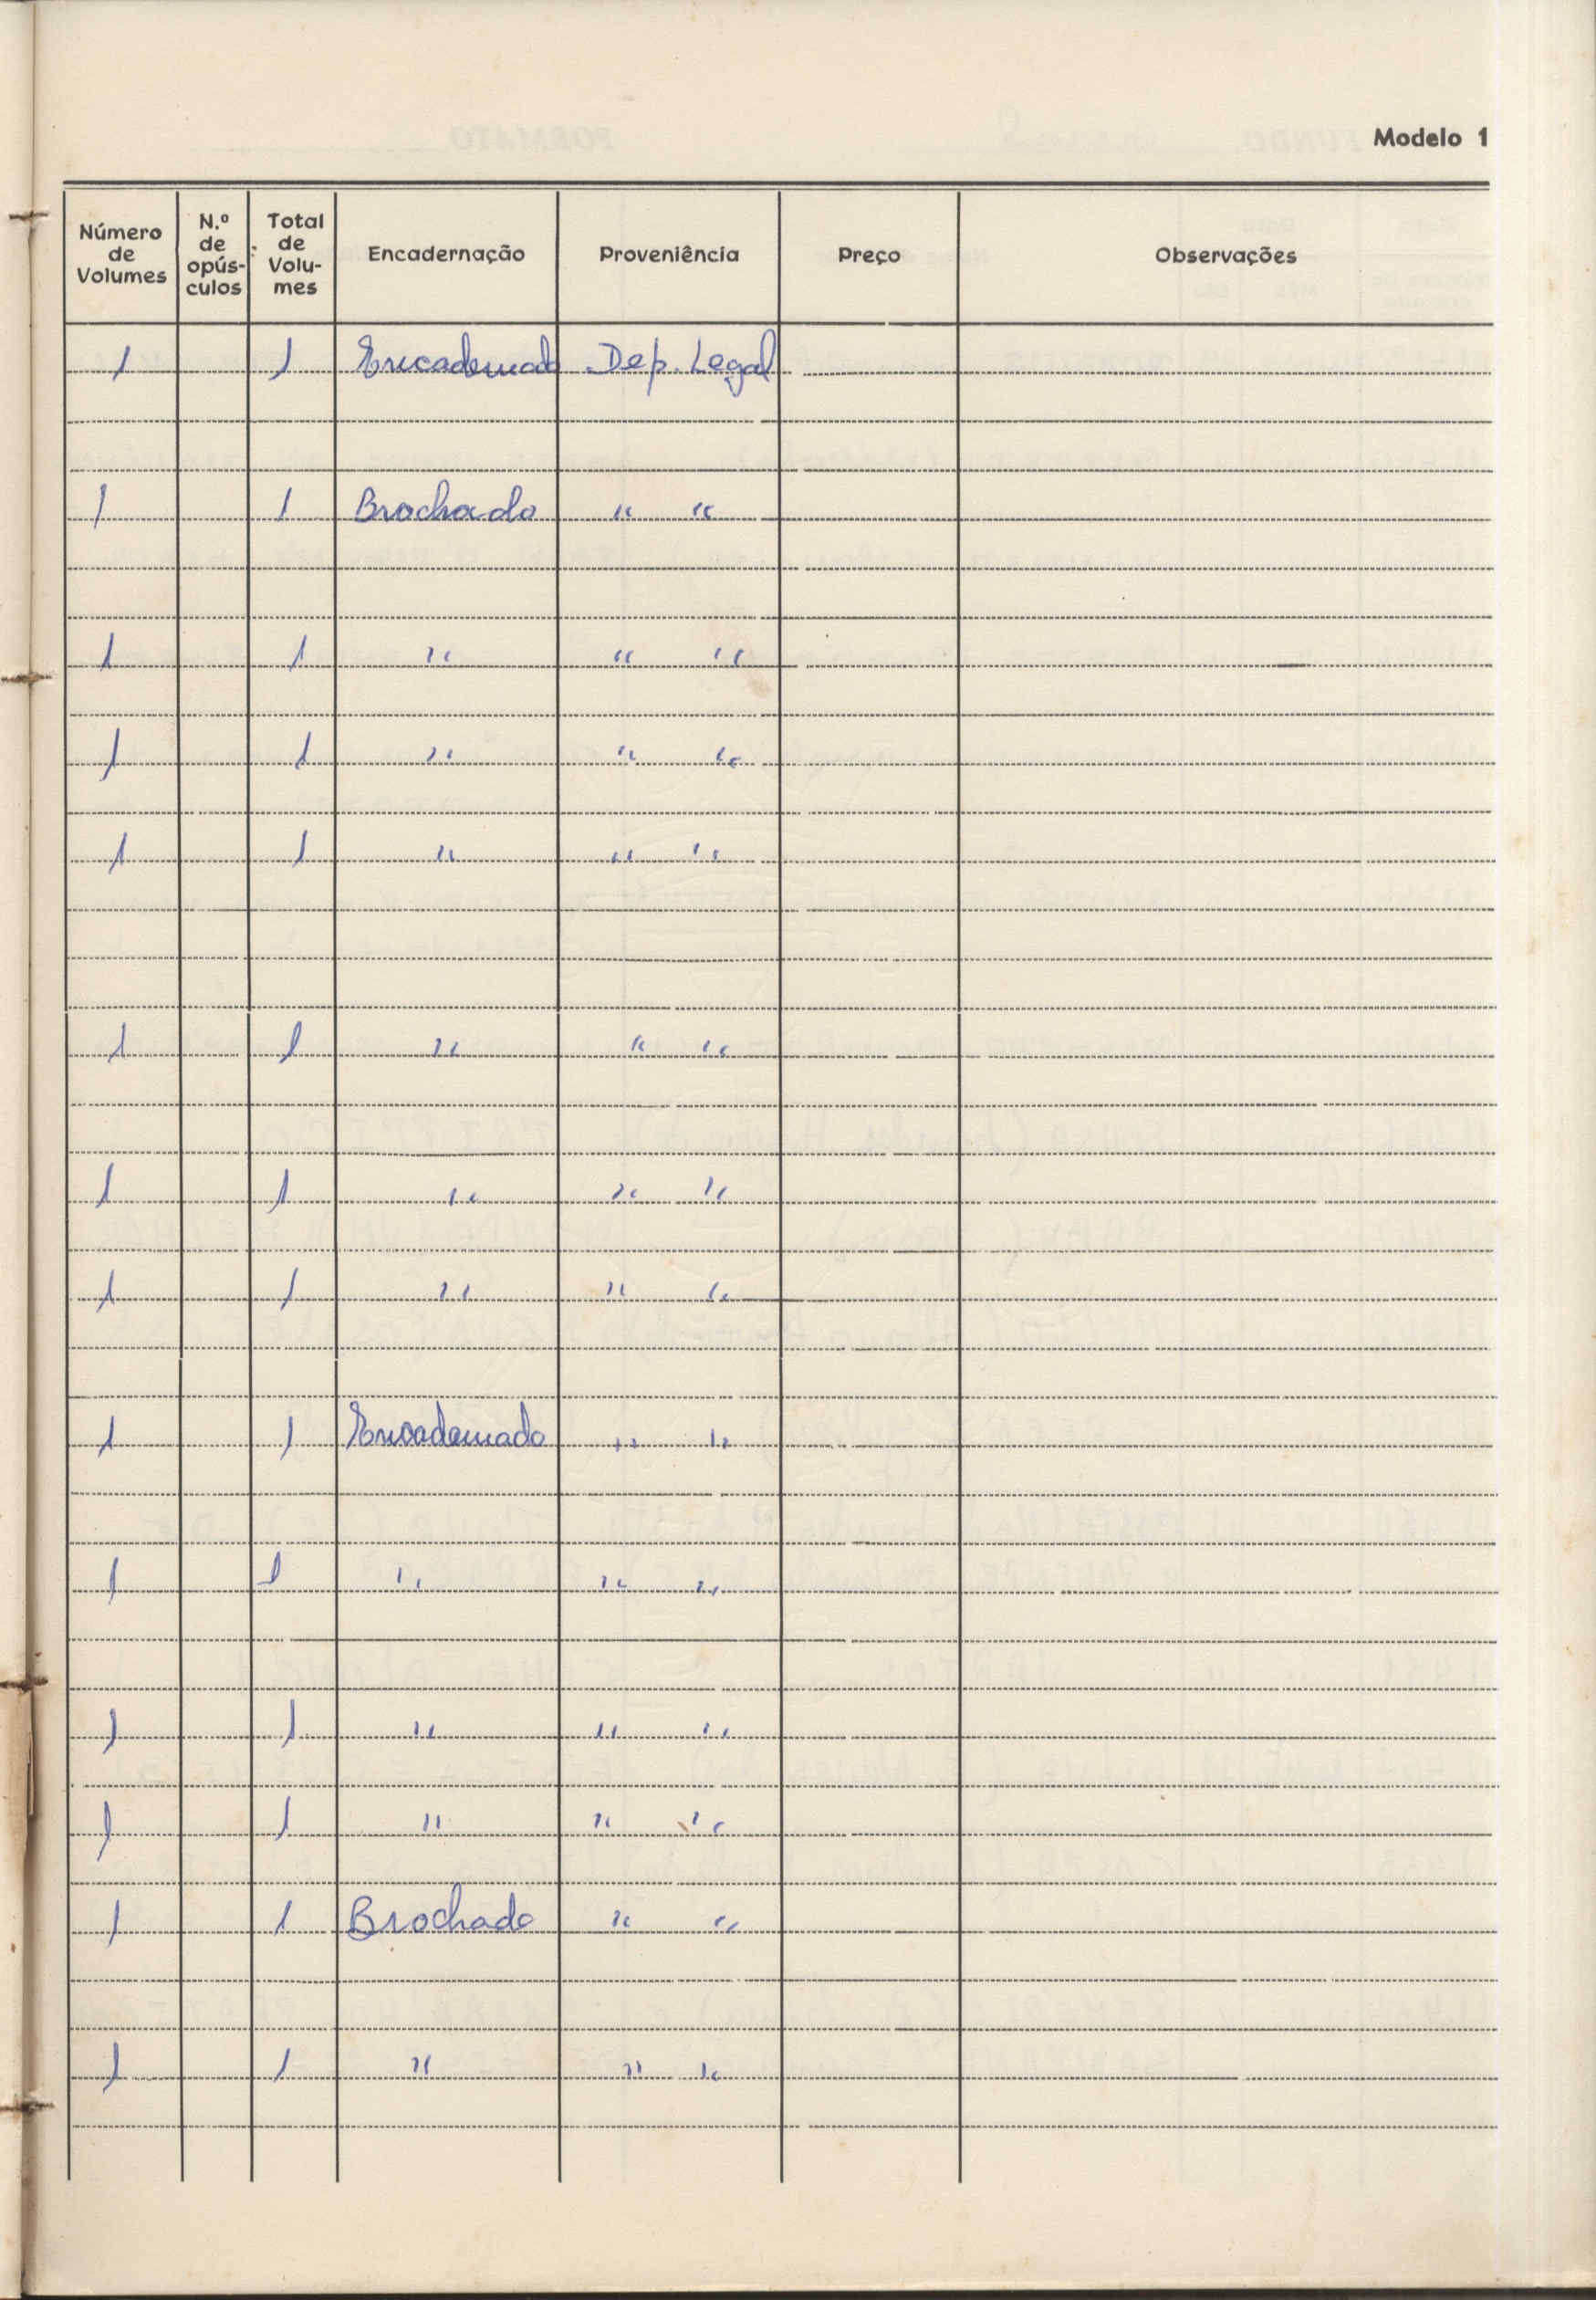 Modelo 1
Número de Volumes | N.º de opús-culos | Total de Volu-mes | Encadernação | Proveniência | Preço | Observações
1 | | 1 | Encadernado | Dep. Legal
1 | | 1 | Brochado | " "
1 | | 1 | " | " "
1 | | 1 | " | " "
1 | | 1 | " | " "
1 | | 1 | " | " "
1 | | 1 | " | " "
1 | | 1 | " | " "
1 | | 1 | Encadernado | " "
1 | | 1 | " | " "
1 | | 1 | " | " "
1 | | 1 | " | " "
1 | | 1 | Brochado | " "
1 | | 1 | " | " "